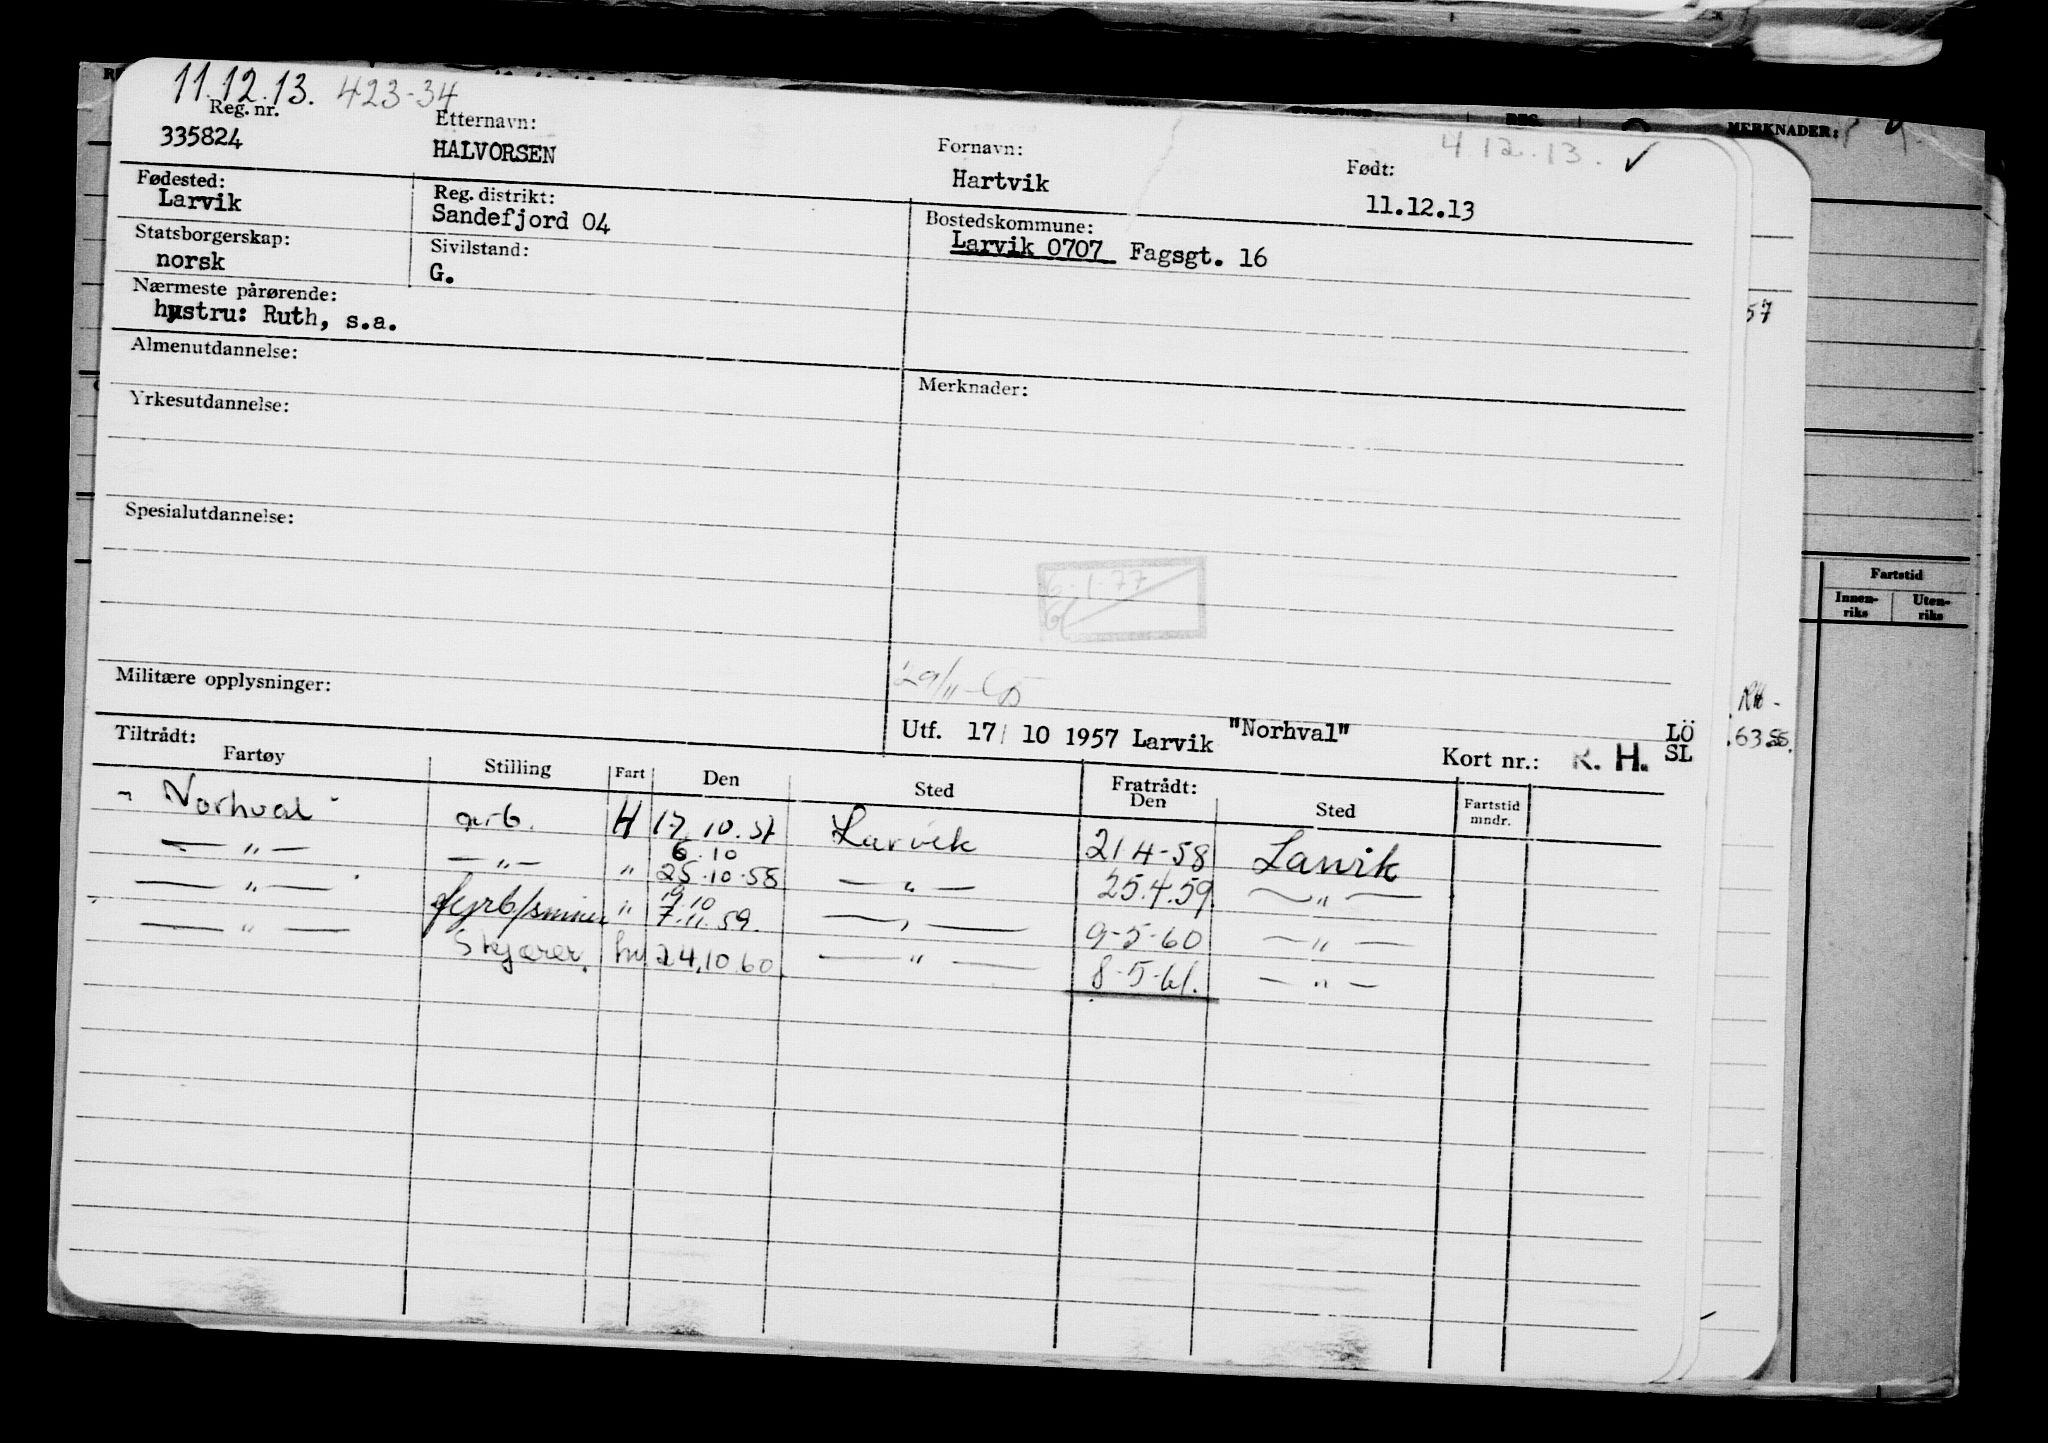 11.12.13. 423-34
Reg. nr.
335824
Etternavn:
HALVORSEN
Fornavn:
Hartvik
4.12.13. ✓
Født:
11.12.13
MERKNADER:
Fødested:
Larvik
Reg. distrikt:
Sandefjord 04
Bostedskommune:
Larvik 0707 Fagsgt. 16
Statsborgerskap:
norsk
Sivilstand:
G.
Nærmeste pårørende:
hustru: Ruth, s.a.
57
Almenutdannelse:
Merknader:
Yrkesutdannelse:
Spesialutdannelse:
6-1-77
Fartstid
Innen-
riks
Uten-
riks
Militære opplysninger:
29/11-
Utf. 17/ 10 1957 Larvik "Norhval"
Kort nr.: R. H.
LÖ
SL
Tiltrådt:
Fartøy Stilling Fart Den Sted Fratrådt: Den Sted Fartstid mndr.
" Norhval " arb. H 17.10.57 Larvik 21 4-58 Larvik
— " — — " — " 6.10 25.10.58 — " — 25.4.59. — " —
— " — fyrb/smører " 19.10 7.11.59. — " — 9-5-60 — " —
— " — Skjærer. hv 24.10.60. — " — 8-5-61. — " —